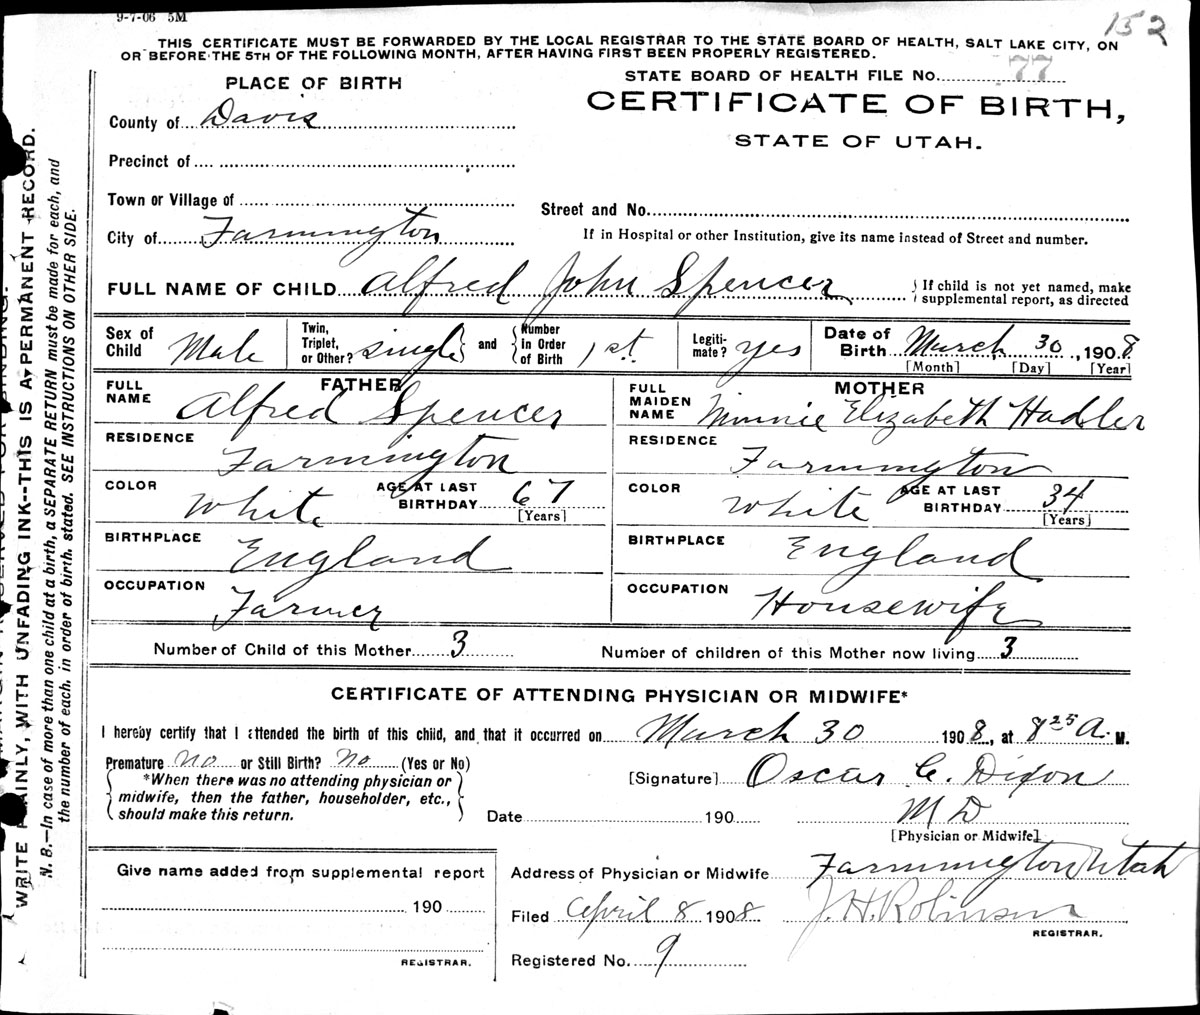 9-7-06 5M
152
THIS CERTIFICATE MUST BE FORWARDED BY THE LOCAL REGISTRAR TO THE STATE BOARD OF HEALTH, SALT LAKE CITY, ON
OR BEFORE THE 5TH OF THE FOLLOWING MONTH, AFTER HAVING FIRST BEEN PROPERLY REGISTERED.
STATE BOARD OF HEALTH FILE No. 77
PLACE OF BIRTH
CERTIFICATE OF BIRTH,
STATE OF UTAH.
County of Davis
Precinct of
Town or Village of
Street and No.
City of Farmington
If in Hospital or other Institution, give its name instead of Street and number.
FULL NAME OF CHILD Alfred John Spencer
{ If child is not yet named, make
supplemental report, as directed
Sex of Child Male
Twin, Triplet, or Other? single } and { Number In Order of Birth 1st
Legitimate? yes
Date of Birth March 30, 1908
[Month] [Day] [Year]
FATHER
FULL NAME Alfred Spencer
RESIDENCE Farmington
COLOR White
AGE AT LAST BIRTHDAY 67
[Years]
BIRTHPLACE England
OCCUPATION Farmer
MOTHER
FULL MAIDEN NAME Minnie Elizabeth Hadler
RESIDENCE Farmington
COLOR White
AGE AT LAST BIRTHDAY 34
[Years]
BIRTHPLACE England
OCCUPATION Housewife
Number of Child of this Mother 3
Number of children of this Mother now living 3
CERTIFICATE OF ATTENDING PHYSICIAN OR MIDWIFE*
I hereby certify that I attended the birth of this child, and that it occurred on March 30 1908, at 8 25 A. M.
Premature no or Still Birth? no (Yes or No)
{ *When there was no attending physician or
midwife, then the father, householder, etc.,
should make this return. }
[Signature] Oscar C. Dixon
M D
Date 190
[Physician or Midwife]
Address of Physician or Midwife Farmington Utah
Give name added from supplemental report
190
REGISTRAR.
Filed April 8 1908
J. H. Robinson
REGISTRAR.
Registered No. 9
WRITE PLAINLY, WITH UNFADING INK--THIS IS A PERMANENT RECORD.
N. B.—In case of more than one child at a birth, a SEPARATE RETURN must be made for each, and
the number of each, in order of birth, stated. SEE INSTRUCTIONS ON OTHER SIDE.